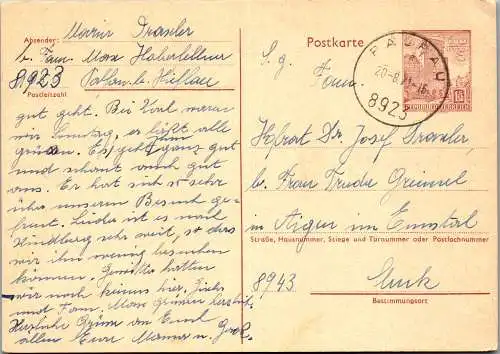 Absender: Maria Draxler
b. Fam. Max Haberfellner
8923
Postleitzahl
gut geht. Bei Karl waren
wir Sonntag, er läßt alle
grüßen. Es geht ganz gut
und schaut auch gut
aus. Er hat sich sehr
über unseren Besuch ge-
freut. Leider ist es nach
weit, so dass
wir ihn wenig besuchen
können. Gewitter hatten
wir noch keines hier,
und Fam. Max Grüßen herzlich
Herzliche Grüße an Emil
allen Eure Mama u.
Postkarte
PALFAU
8923
REPUBLIK ÖSTERREICH
S. g.
Fam.
Hofrat Dr. Josef Draxler
b. Frau Trude
in Aigen im Ennstal
Straße, Hausnummer, Stiege und Türnummer oder Postfachnummer
8943
Bestimmungsort